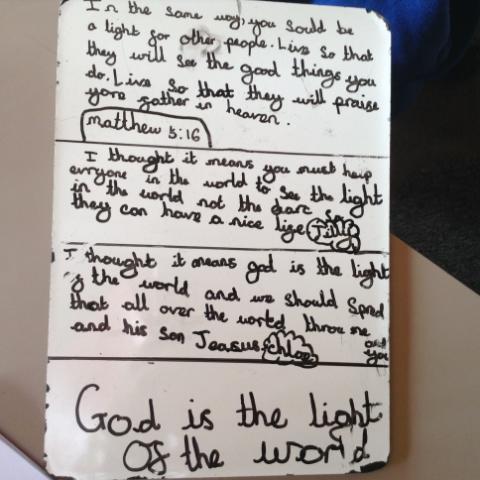 In the same way, you sould be
a light for other people. Live so that
they will see the good things you
do. Live so that they will praise
yore father in heaven.
matthew 5:16
I thought it means you must help
evryone in the world to see the light
in the world not the darc so
they can have a nice life Jilly
I thought it means god is the light
of the world and we should spred
that all over the world throu me
and his son Jeasus chloe and you
God is the light
Of the world